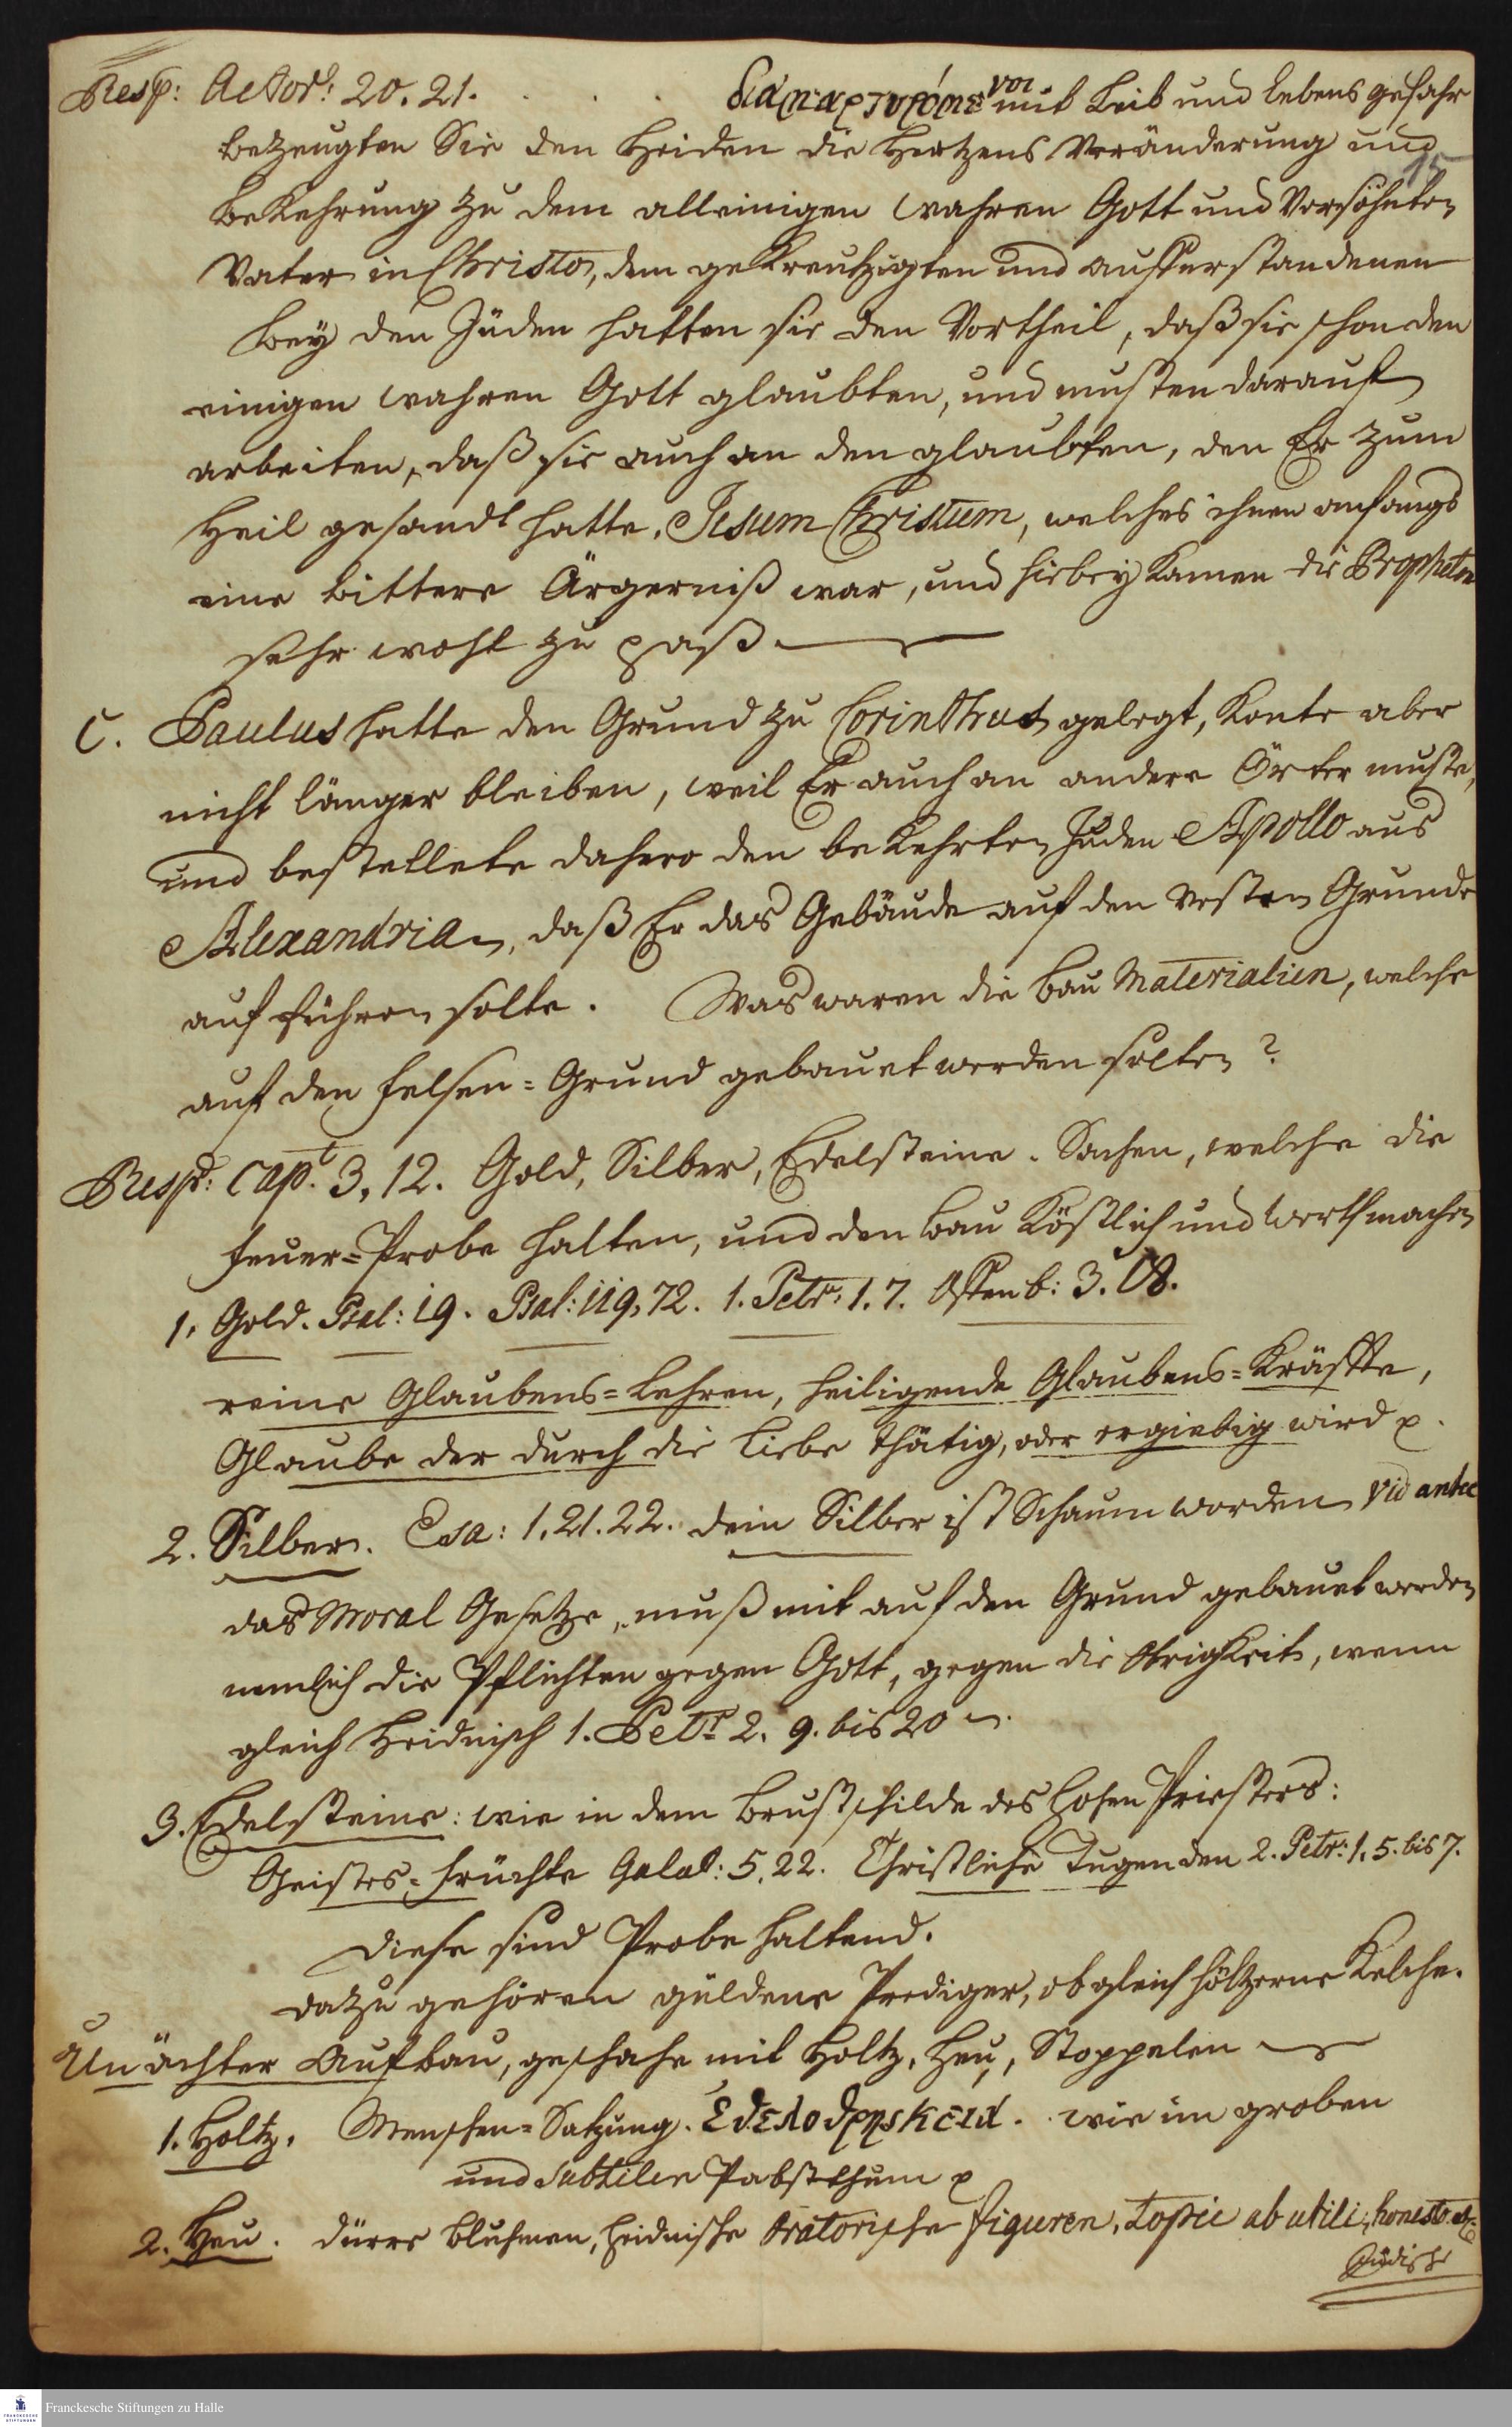 Resp: Actor: 20. 21. . . . διαμαρτυρόμενοι mit Leib und Lebens gefahr
bezeugten Sie den Heiden die Hertzens Veränderung und
15
Bekehrung zu dem alleinigen wahren Gott und Versöhnten
Vater in Christo, dem gekreutzigten und aufferstandenen
Bey den Jüden hatten sie den Vortheil, daß sie schon den
einigen wahren Gott glaubten, und musten darauf
arbeiten, daß sie auch an den glaubten, den Er zum
Heil gesandt hatte, Jesum Christum, welches ihnen anfangs
eine bittere Ärgerniß war, und hiebey kamen die Propheten
sehr wohl zu paß.
C. Paulus hatte den Grund zu Corinthus gelegt, konte aber
nicht länger bleiben, weil Er auch an andere Örter muste,
und bestellete dahero den bekehrten Juden Apollo aus
Alexandria, daß Er das Gebäude auf den vesten Grunde
auf führen solte. Was waren die Bau Materialien, welche
auf den felsen=Grund gebauet werden solten?
Resp: Cap. 3, 12. Gold, Silber, Edelsteine. Sachen, welche die
feuer=Probe halten, und den Bau köstlich und werth machen
1, Gold. Psal: 19. Psal: 119, 72. 1. Petr: 1. 7. Offenb: 3. 18.
reine Glaubens=Lehren, heiligende Glaubens=Kräffte,
Glaube der durch die Liebe thätig, oder ergiebig wird p.
2. Silber. Esa: 1, 21. 22. dein Silber ist Schaum worden vid antec
das Moral Gesetze, muß mit auf den Grund gebauet werden
nemlich die Pflichten gegen Gott, gegen die Obrigkeit, wenn
gleich Heidnisch 1. Petr 2. 9. bis 20
3. Edelsteine: wie in dem Brustschilde des Hohen Priesters:
Geistes=früchte Galat: 5, 22. Christliche Tugenden 2. Petr: 1, 5. bis 7.
Diese sind Probe haltend.
dazu gehören güldene Prediger, obgleich höltzerne Kelche.
Unächter Aufbau, geschahe mit Holtz, Heu, Stoppelen
1. Holtz. Menschen=Satzung. ἐθελοθρησκεία. wie im groben
und subtilen Pabstthum p
2. Heu. dürre Bluhmen, heidnische Oratorische figuren, Topic ab utili, honesto
Jüdische
Franckesche Stiftungen zu Halle